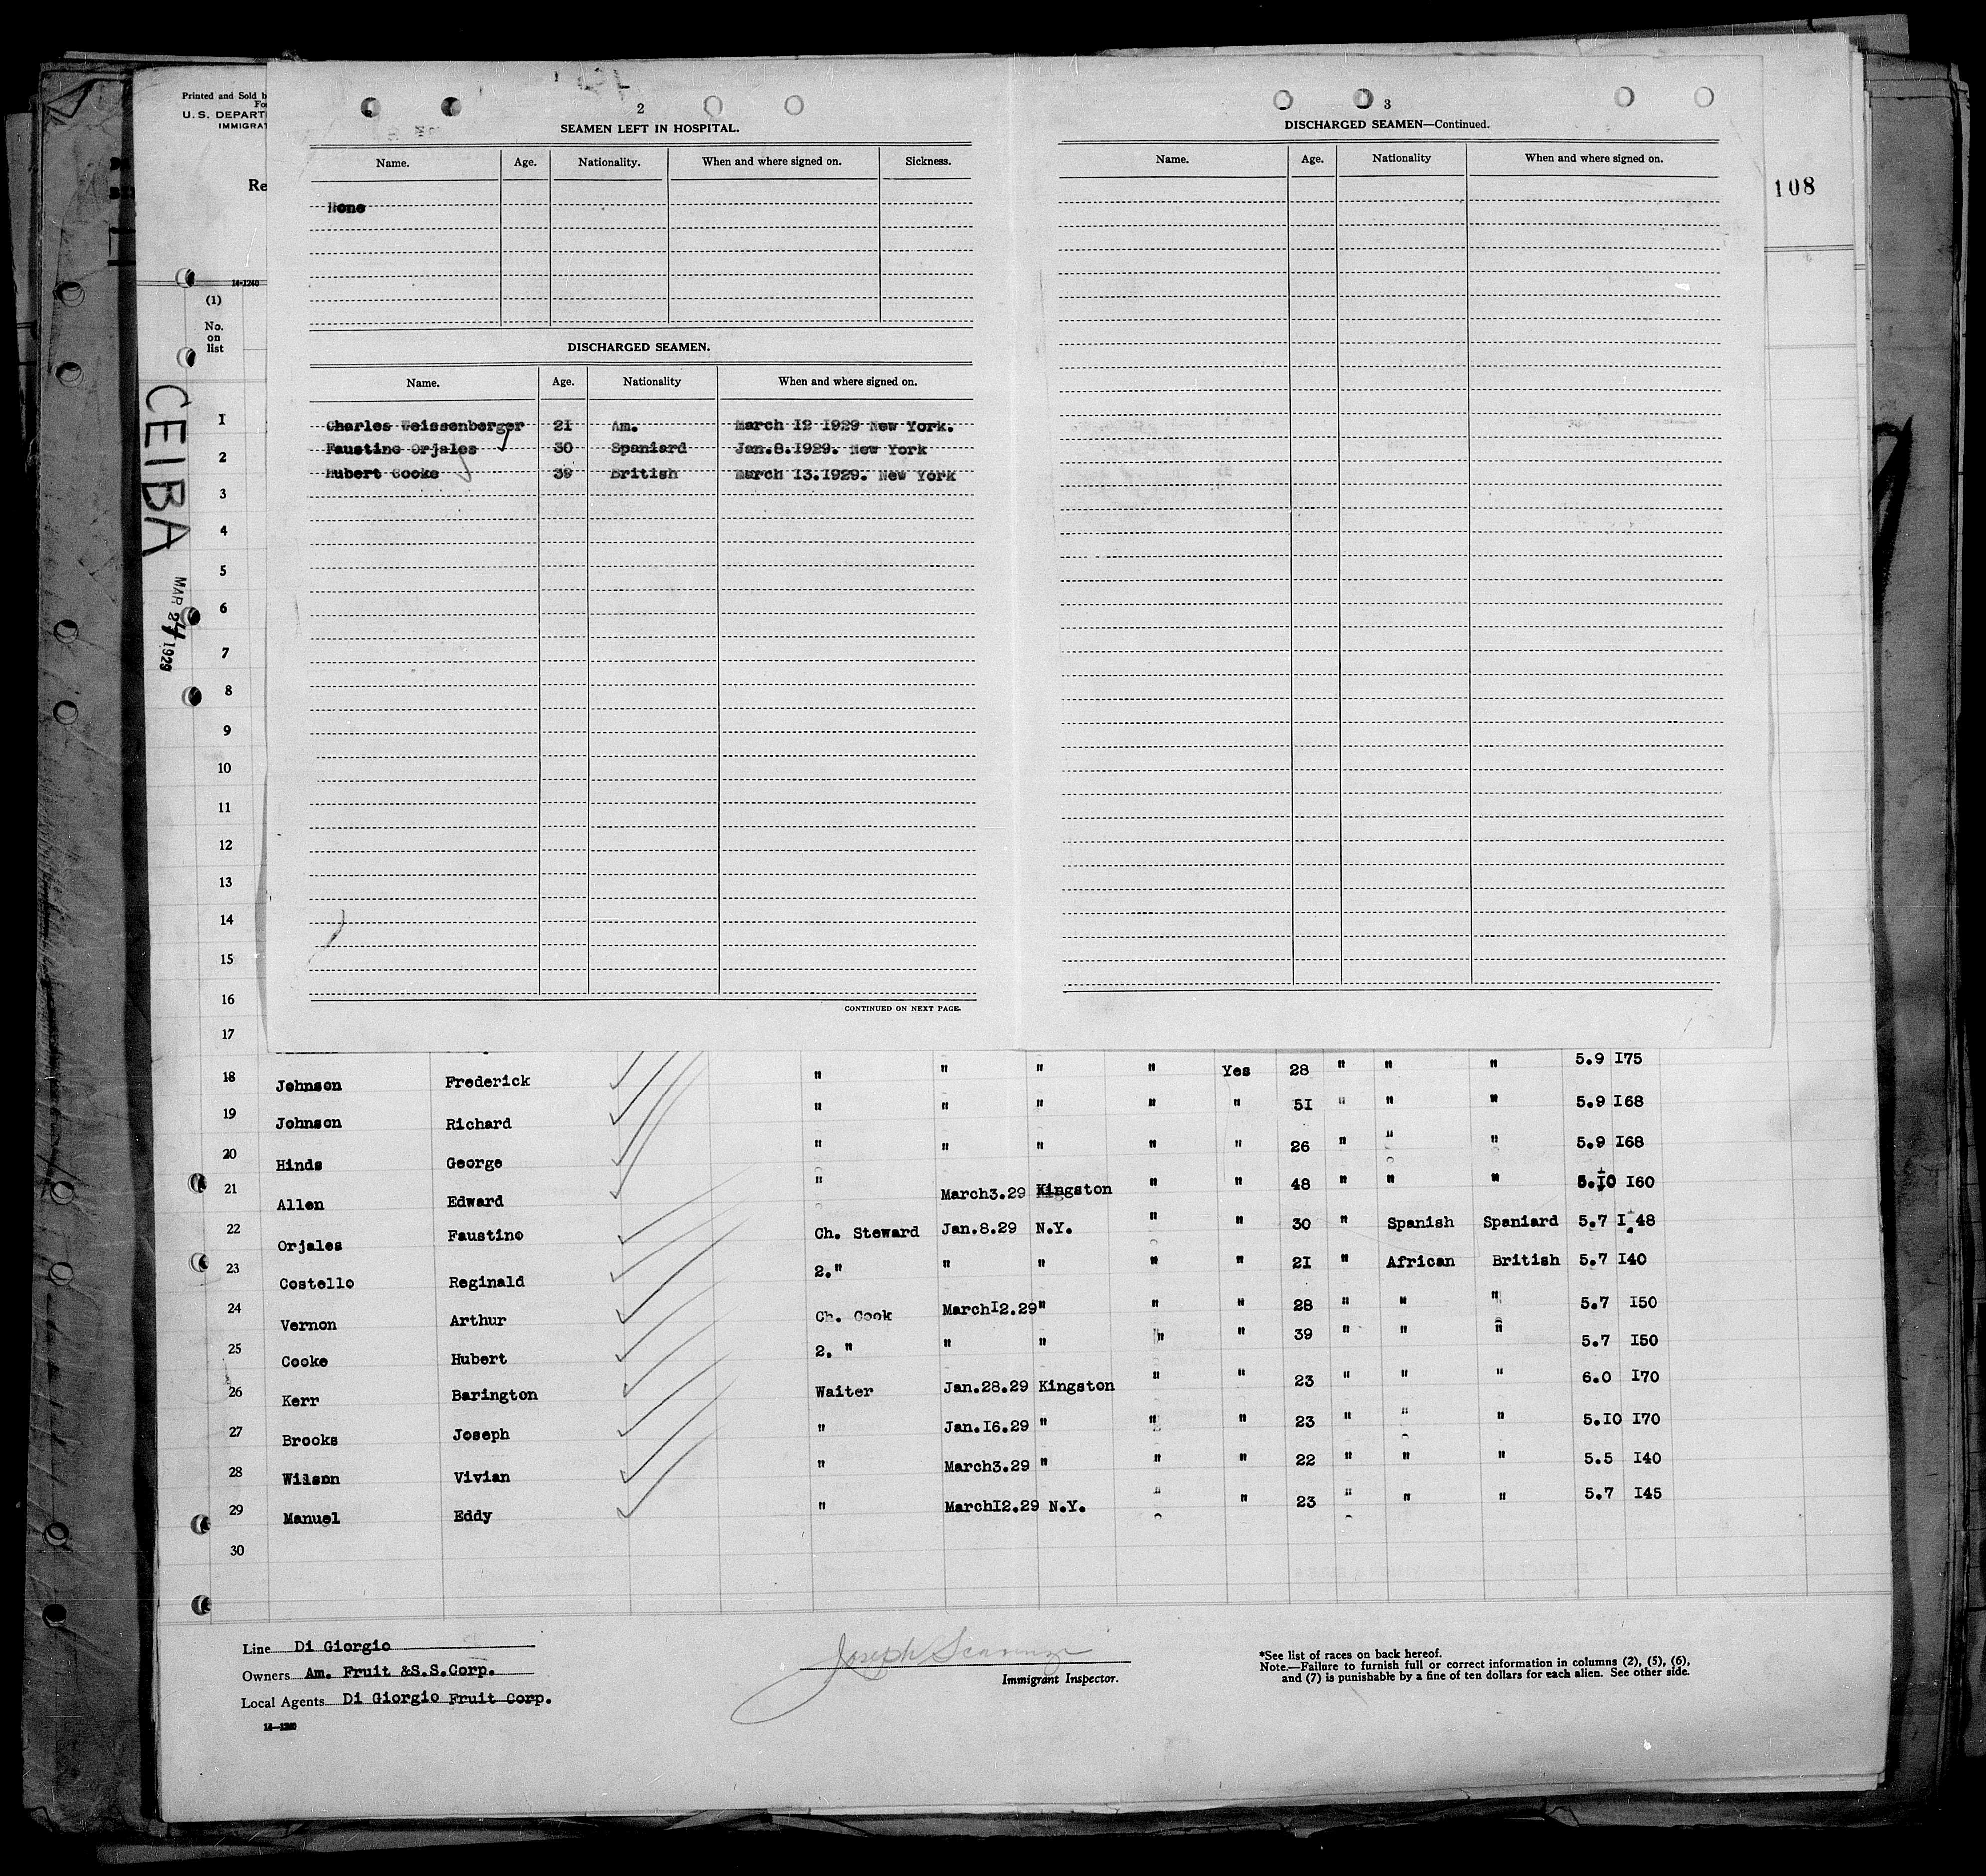 Printed and Sold b
Fo
U. S. DEPART
IMMIGRAT
Re
14-1240
(1)
No.
on
list
CEIBA
MAR 24 1929
108
2
SEAMEN LEFT IN HOSPITAL.
Name. Age. Nationality. When and where signed on. Sickness.
None
DISCHARGED SEAMEN.
Name. Age. Nationality When and where signed on.
Charles Weissenberger 21 Am. March 12 1929 New York.
Faustino Orjales 30 Spaniard Jan.8.1929. New York
Hubert Cooke 39 British March 13.1929. New York
CONTINUED ON NEXT PAGE.
3
DISCHARGED SEAMEN—Continued.
Name. Age. Nationality When and where signed on.
1
2
3
4
5
6
7
8
9
10
11
12
13
14
15
16
17
5.9 175
18 Johnson Frederick " " " " Yes 28 " " "
19 Johnson Richard " " " " " 51 " " " 5.9 168
20 Hinds George " " " " " 26 " " " 5.9 168
21 Allen Edward " March3.29 Kingston " " 48 " " " 5.10 160
22 Orjales Faustino Ch. Steward Jan.8.29 N.Y. " " 30 " Spanish Spaniard 5.7 148
23 Costello Reginald 2." " " " " 21 " African British 5.7 140
24 Vernon Arthur Ch. Cook March12.29 " " " 28 " " " 5.7 150
25 Cooke Hubert 2. " " " " " 39 " " " 5.7 150
26 Kerr Barington Waiter Jan.28.29 Kingston " " 23 " " " 6.0 170
27 Brooks Joseph " Jan.16.29 " " " 23 " " " 5.10 170
28 Wilson Vivian " March3.29 " " " 22 " " " 5.5 140
29 Manuel Eddy " March12.29 N.Y. " " 23 " " " 5.7 145
30
Line Di Giorgio
Owners Am. Fruit &S.S.Corp.
Local Agents Di Giorgio Fruit Corp.
14—1240
Joseph
Immigrant Inspector.
*See list of races on back hereof.
Note.—Failure to furnish full or correct information in columns (2), (5), (6),
and (7) is punishable by a fine of ten dollars for each alien. See other side.